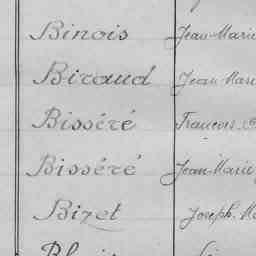 Binois Jean Marie
Biraud Jean Mari
Bisséré Francois
Bisséré Jean-Marie
Bizet Joseph. Ma